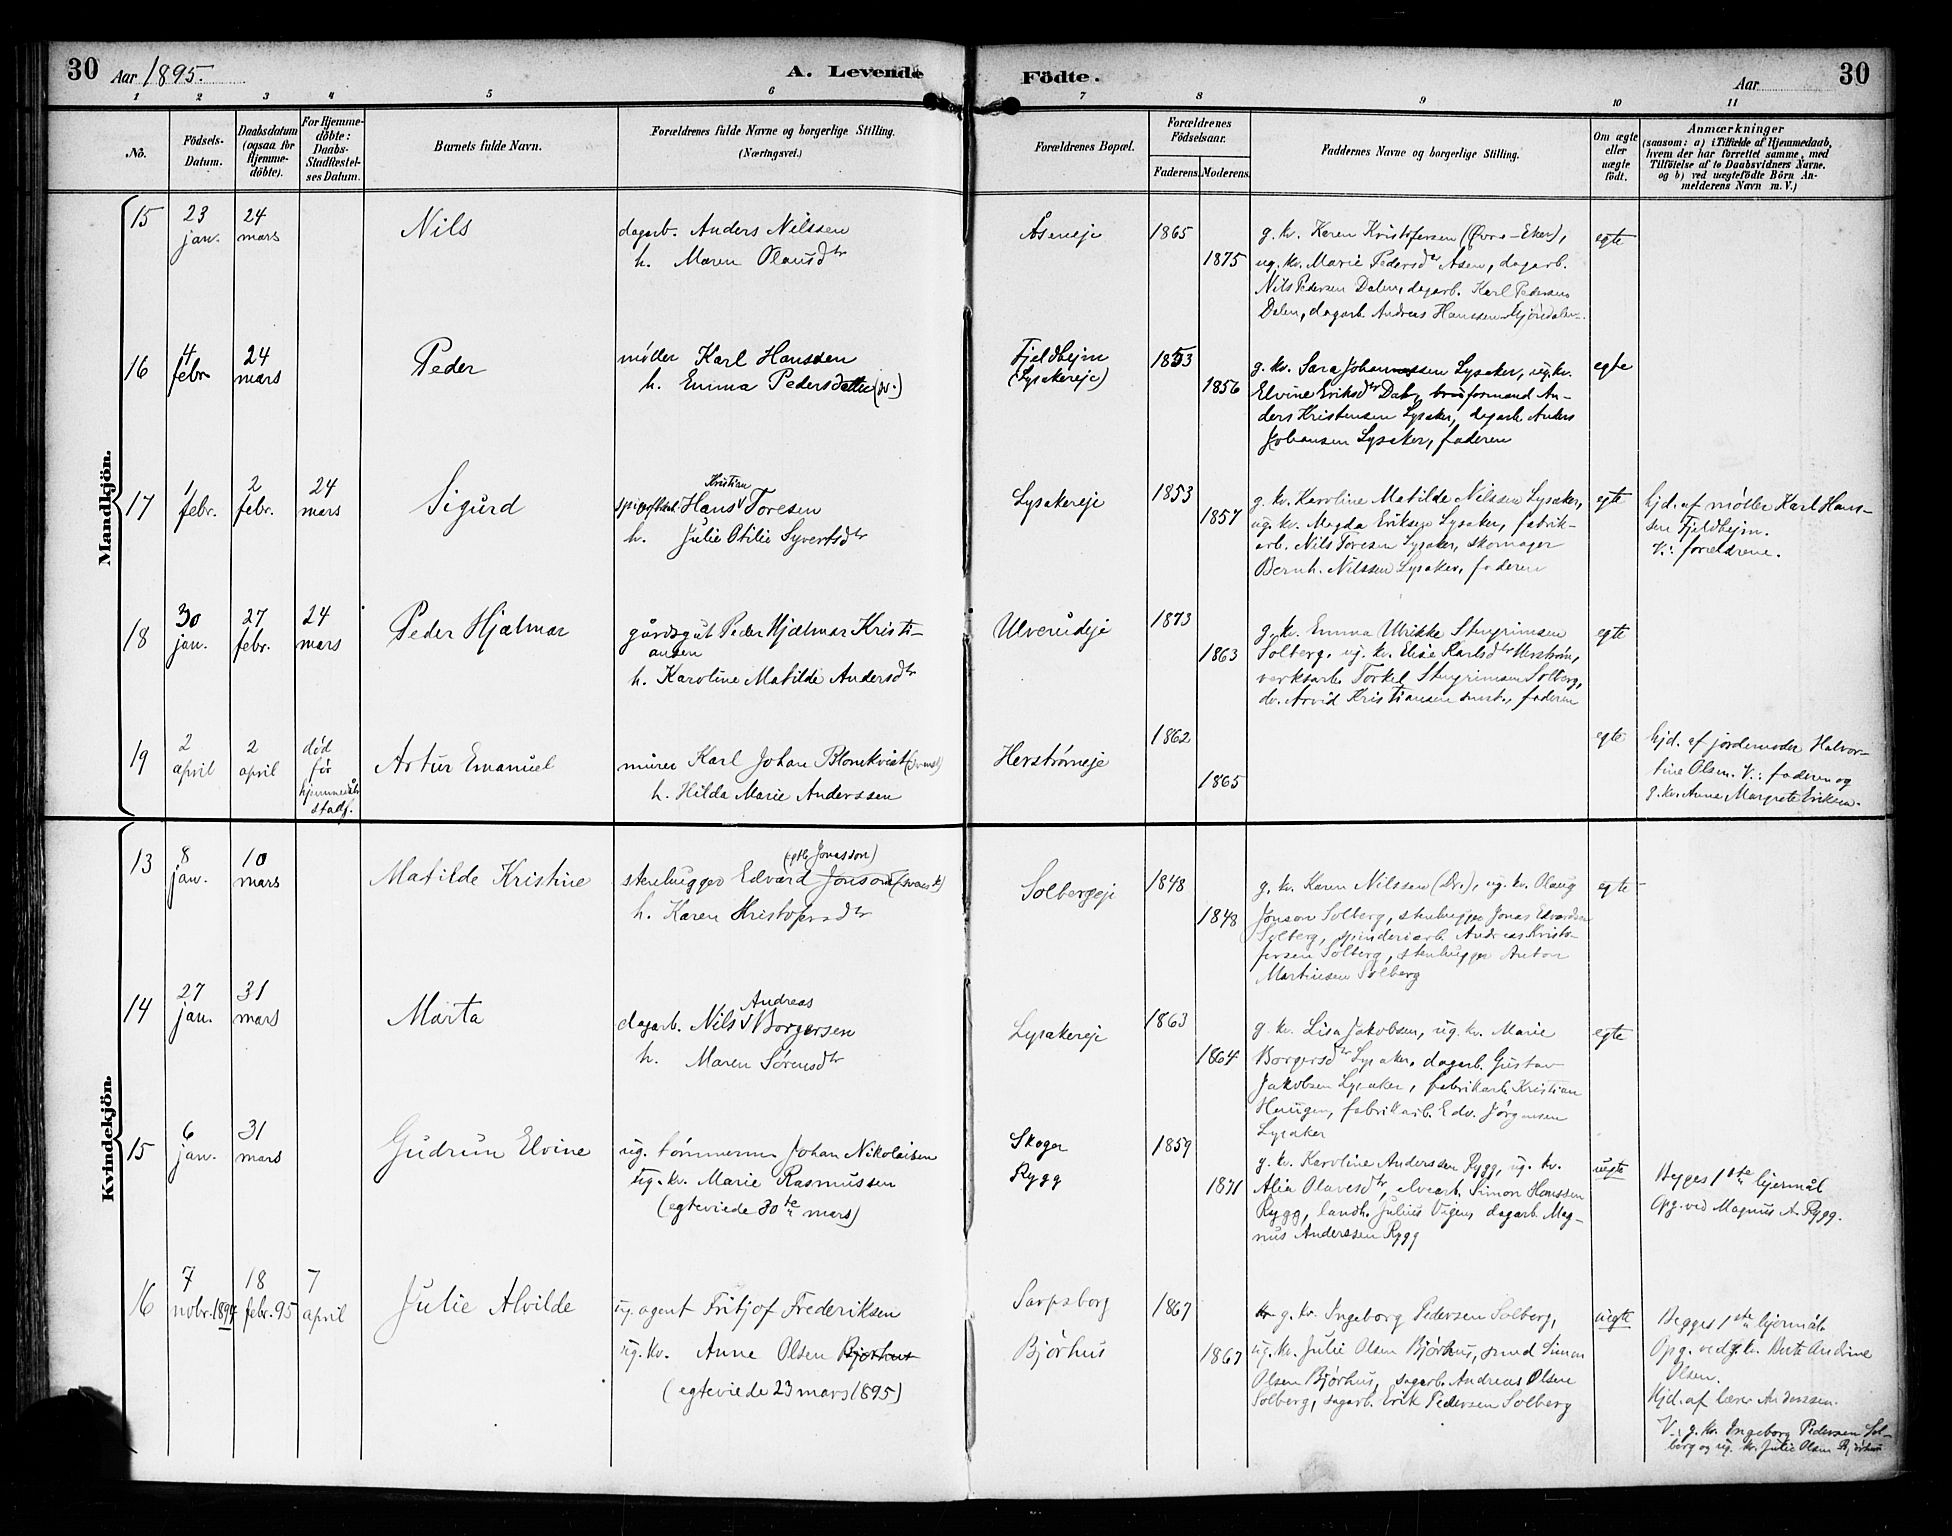 30 Aar 1895.
A. Levende Födte.
Aar 30
1 2 3 4 5 6 7 8 9 10 11
No.
Födsels-
Datum.
Daabsdatum
(ogsaa for
Hjemme-
döbte).
For Hjemme-
döbte:
Daabs-
Stadfæstel-
ses Datum.
Barnets fulde Navn.
Forældrenes fulde Navne og borgerlige Stilling.
(Næringsvei.)
Forældrenes Bopæl.
Forældrenes
Födselsaar.
Faderens. Moderens.
Faddernes Navne og borgerlige Stilling.
Om ægte
eller
uægte
födt.
Anmærkninger
(saasom: a) i Tilfælde af Hjemmedaab,
hvem der har forrettet samme, med
Tilföielse af to Daabsvidners Navne.
og b) ved uægtefödte Börn An-
melderens Navn m. V.)
Mandkjön.
15
23
jan.
24
mars
Nils
dagarb. Anders Nilssen
h. Maren Olausdtr
Åseneje
1865
1875
g. kv. Karen Kristofersen (Øvre-Eker),
ug. kv. Marie Pedersdtr Åsen, dagarb.
Nils Pedersen Dalen, dagarb. Karl Pedersen
Dalen, dagarb. Andreas Hanssen Mjøndalen.
egte
16
4
febr
24
mars
Peder
møller Karl Hanssen
h. Emma Pedersdatter (dr.)
Fjeldhejm
(Lysakereje)
1853
1856
g. kv. Sara Johannessen Lysaker, ug. kv.
Elvine Eriksdtr Dal, formand An-
ders Kristensen Lysaker, dagarb. Anders
Johansen Lysaker, faderen
egte
17
1
febr.
2
febr.
24
mars
Sigurd
Kristian
Hans V Toresen
h. Julie Otilie Syvertsdtr
Lysakereje
1853
1857
g. kv. Karoline Matilde Nilssen Lysaker,
ug. kv. Magda Eriksen Lysaker, fabrik-
arb. Nils Toresen Lysaker, skomager
Bernh. Nilssen Lysaker, faderen
egte
hjd. af møller Karl Hans-
sen Fjeldhejm.
V.: forældrene.
18
30
jan.
27
febr.
24
mars
Peder Hjalmar
gårdsgut Peder Hjalmar Kristi-
ansen
h. Karoline Matilde Andersdtr
Ulverudeje
1873
1863
g. kv. Emma Ulrikke Stengrimsen
Solberg, ug. kv. Elise Karlsdtr Herstrøm,
verksarb. Torkel Stengrimsen Solberg,
do. Arvid Kristiansen smst., faderen
egte
19
2
april
2
april
død
før
hjemmedåb
stadf.
Artur Emanuel
murer Karl Johan Blomkvist (svensk)
h. Hilda Marie Anderssen
Herstrømeje
1862
1865
egte
hjd. af jordemoder Halvor-
tine Olsen. V.: faderen og
g. kv. Anne Margrete Eriksen.
Kvindekjön.
13
8
jan.
10
mars
Matilde Kristine
Jonasson)
stenhugger Edvard Jonson (svensk)
h. Karen Kristofersdtr
Solbergeje
1848
1848
g. kv. Karen Nilssen (Dr.), ug. kv. Olaug
Jonson Solberg, stenhugger Jonas Edvardsen
Solberg, spinderiarb. Andreas Kristo-
fersen Solberg, stenhugger Anton
Martinsen Solberg
egte
14
27
jan.
31
mars
Marta
Andreas
dagarb. Nils V Borgersen
h. Maren Sørensdtr
Lysakereje
1863
1864
g. kv. Lisa Jakobsen, ug. kv. Marie
Borgersdtr Lysaker, dagarb. Gustav
Jakobsen Lysaker, fabrikarb. Kristian
Haugen, fabrikarb. Edv. Jørgensen
Lysaker
egte
15
6
jan.
31
mars
Gudrun Elvine
ug. tømmerm. Johan Nikolaisen
ug. kv. Marie Rasmussen
(egteviede 30te mars)
Skoger
Rygg
1859
1871
g. kv. Karoline Anderssen Rygg, ug. kv.
Alia Olavesdtr, elvearb. Simon Hanssen
Rygg, landh. Julius Vigen, dagarb. Mag-
nus Anderssen Rygg
uegte
Begges 1ste lejermål
Opg. ved Magnus A. Rygg.
16
7
nobr. 1894
18
febr. 95
7
april
Julie Alvilde
ug. agent Fritjof Frederiksen
ug. kv. Anne Olsen Bjørhus
(egteviede 23 mars 1895)
Sarpsborg
Bjørhus
1867
1867
g. kv. Ingeborg Pedersen Solberg,
ug. kv. Julie Olsen Bjørhus, smed Simon
Olsen Bjørhus, dagarb. Andreas Olsen
Solberg, dagarb. Erik Pedersen Solberg
uegte
Begges 1ste lejermål
Opg. ved g. kv. Berte Andrine
Olsen.
Hjd. af lærer Anderssen.
V.: g. kv. Ingeborg Pedersen Sol-
berg og ug. kv. Julie Olsen Bjørhus